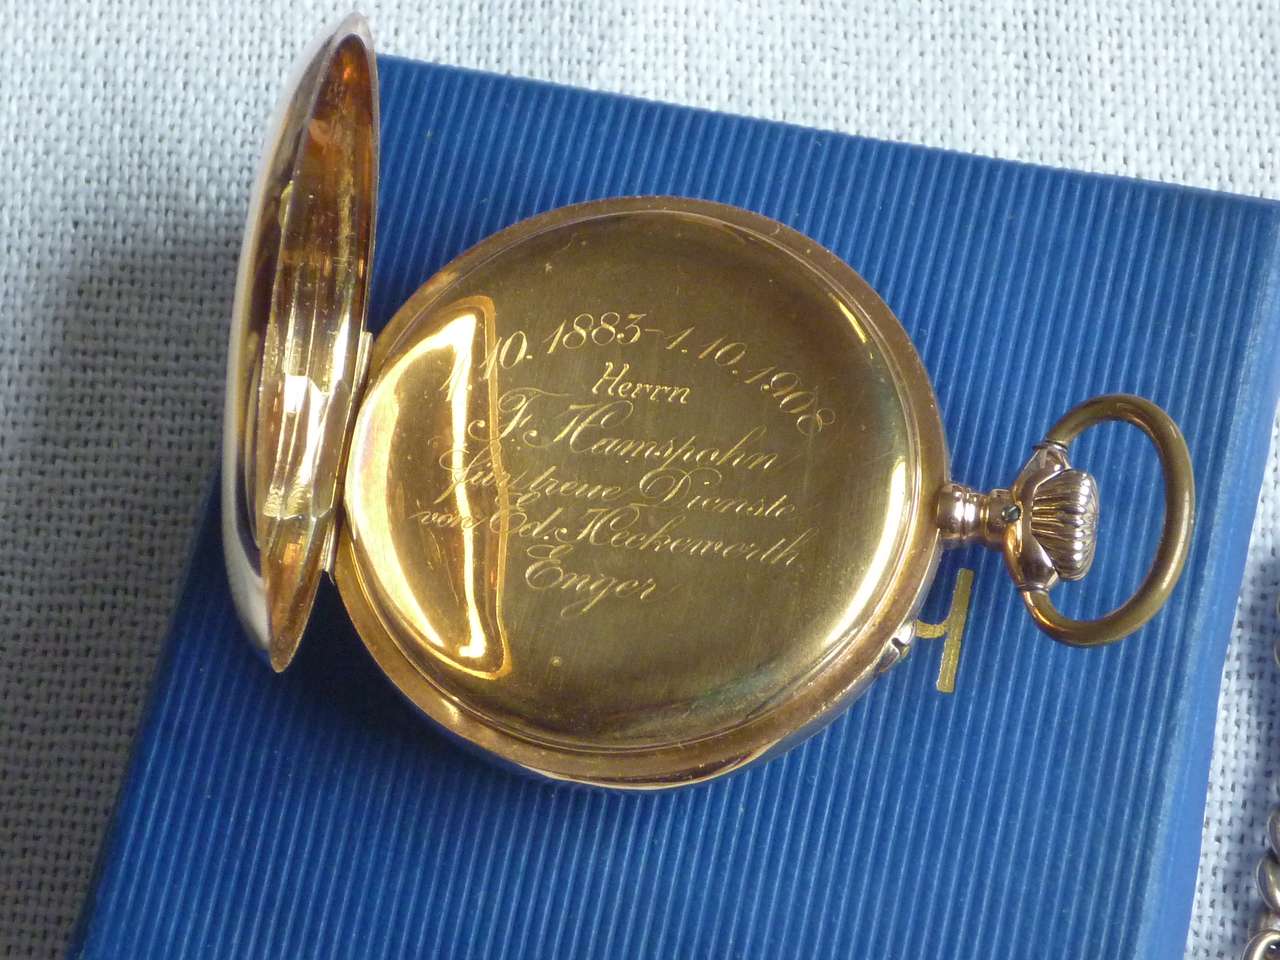 1.10.1883-1.10.1908
Herrn
F. Hamspohn
für treue Dienste
von Ed. Heckeworth
Enger